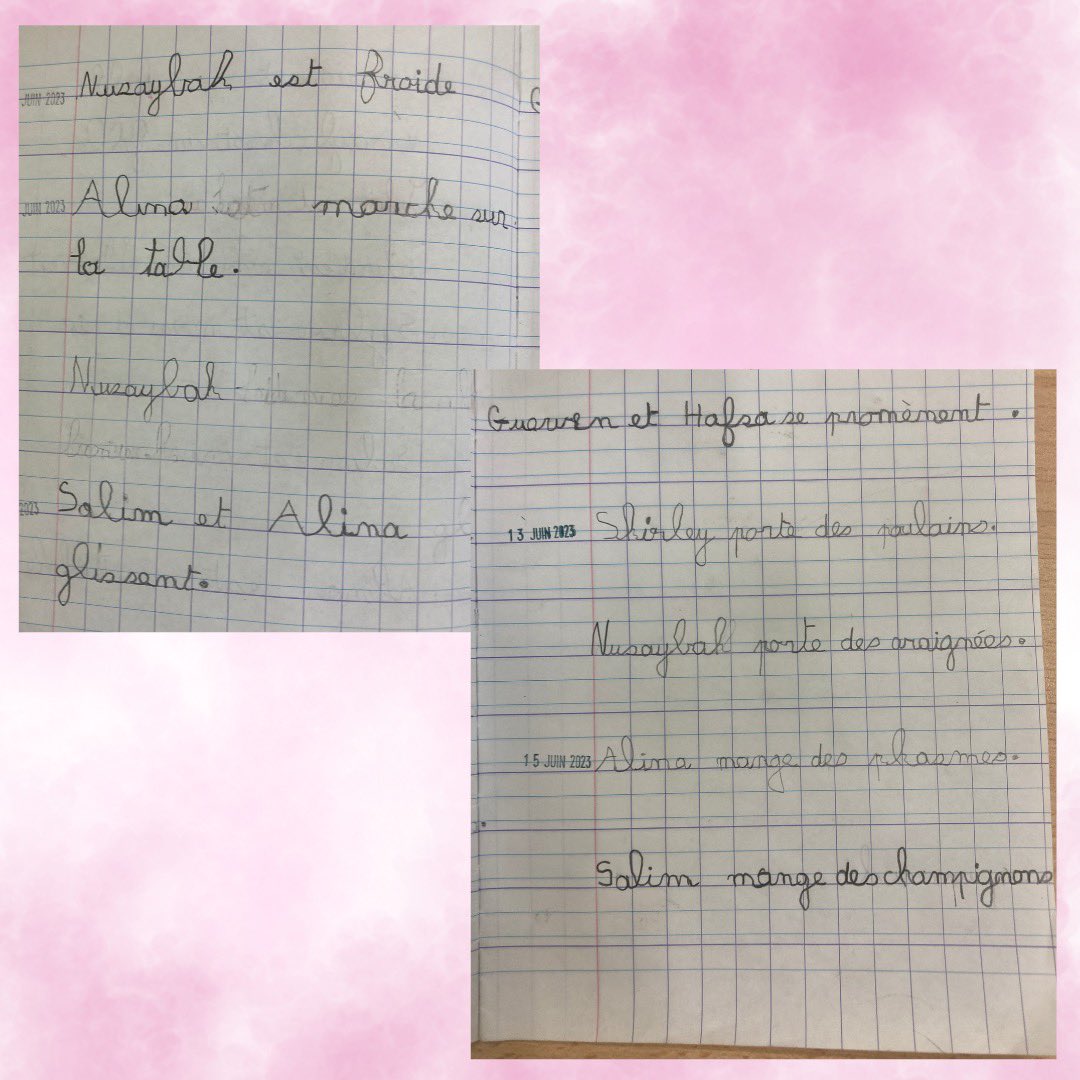 JUIN 2023 Nusaybah est froide
JUIN 2023 Alina marche sur
la table.
Nusaybah
2023 Salim et Alina
glissant.
Guerven et Hafsa se promènent.
13 JUIN 2023 Shirley porte des poulains.
Nusaybah porte des araignées.
15 JUIN 2023 Alima mange des phasmes.
Salim mange des champignons